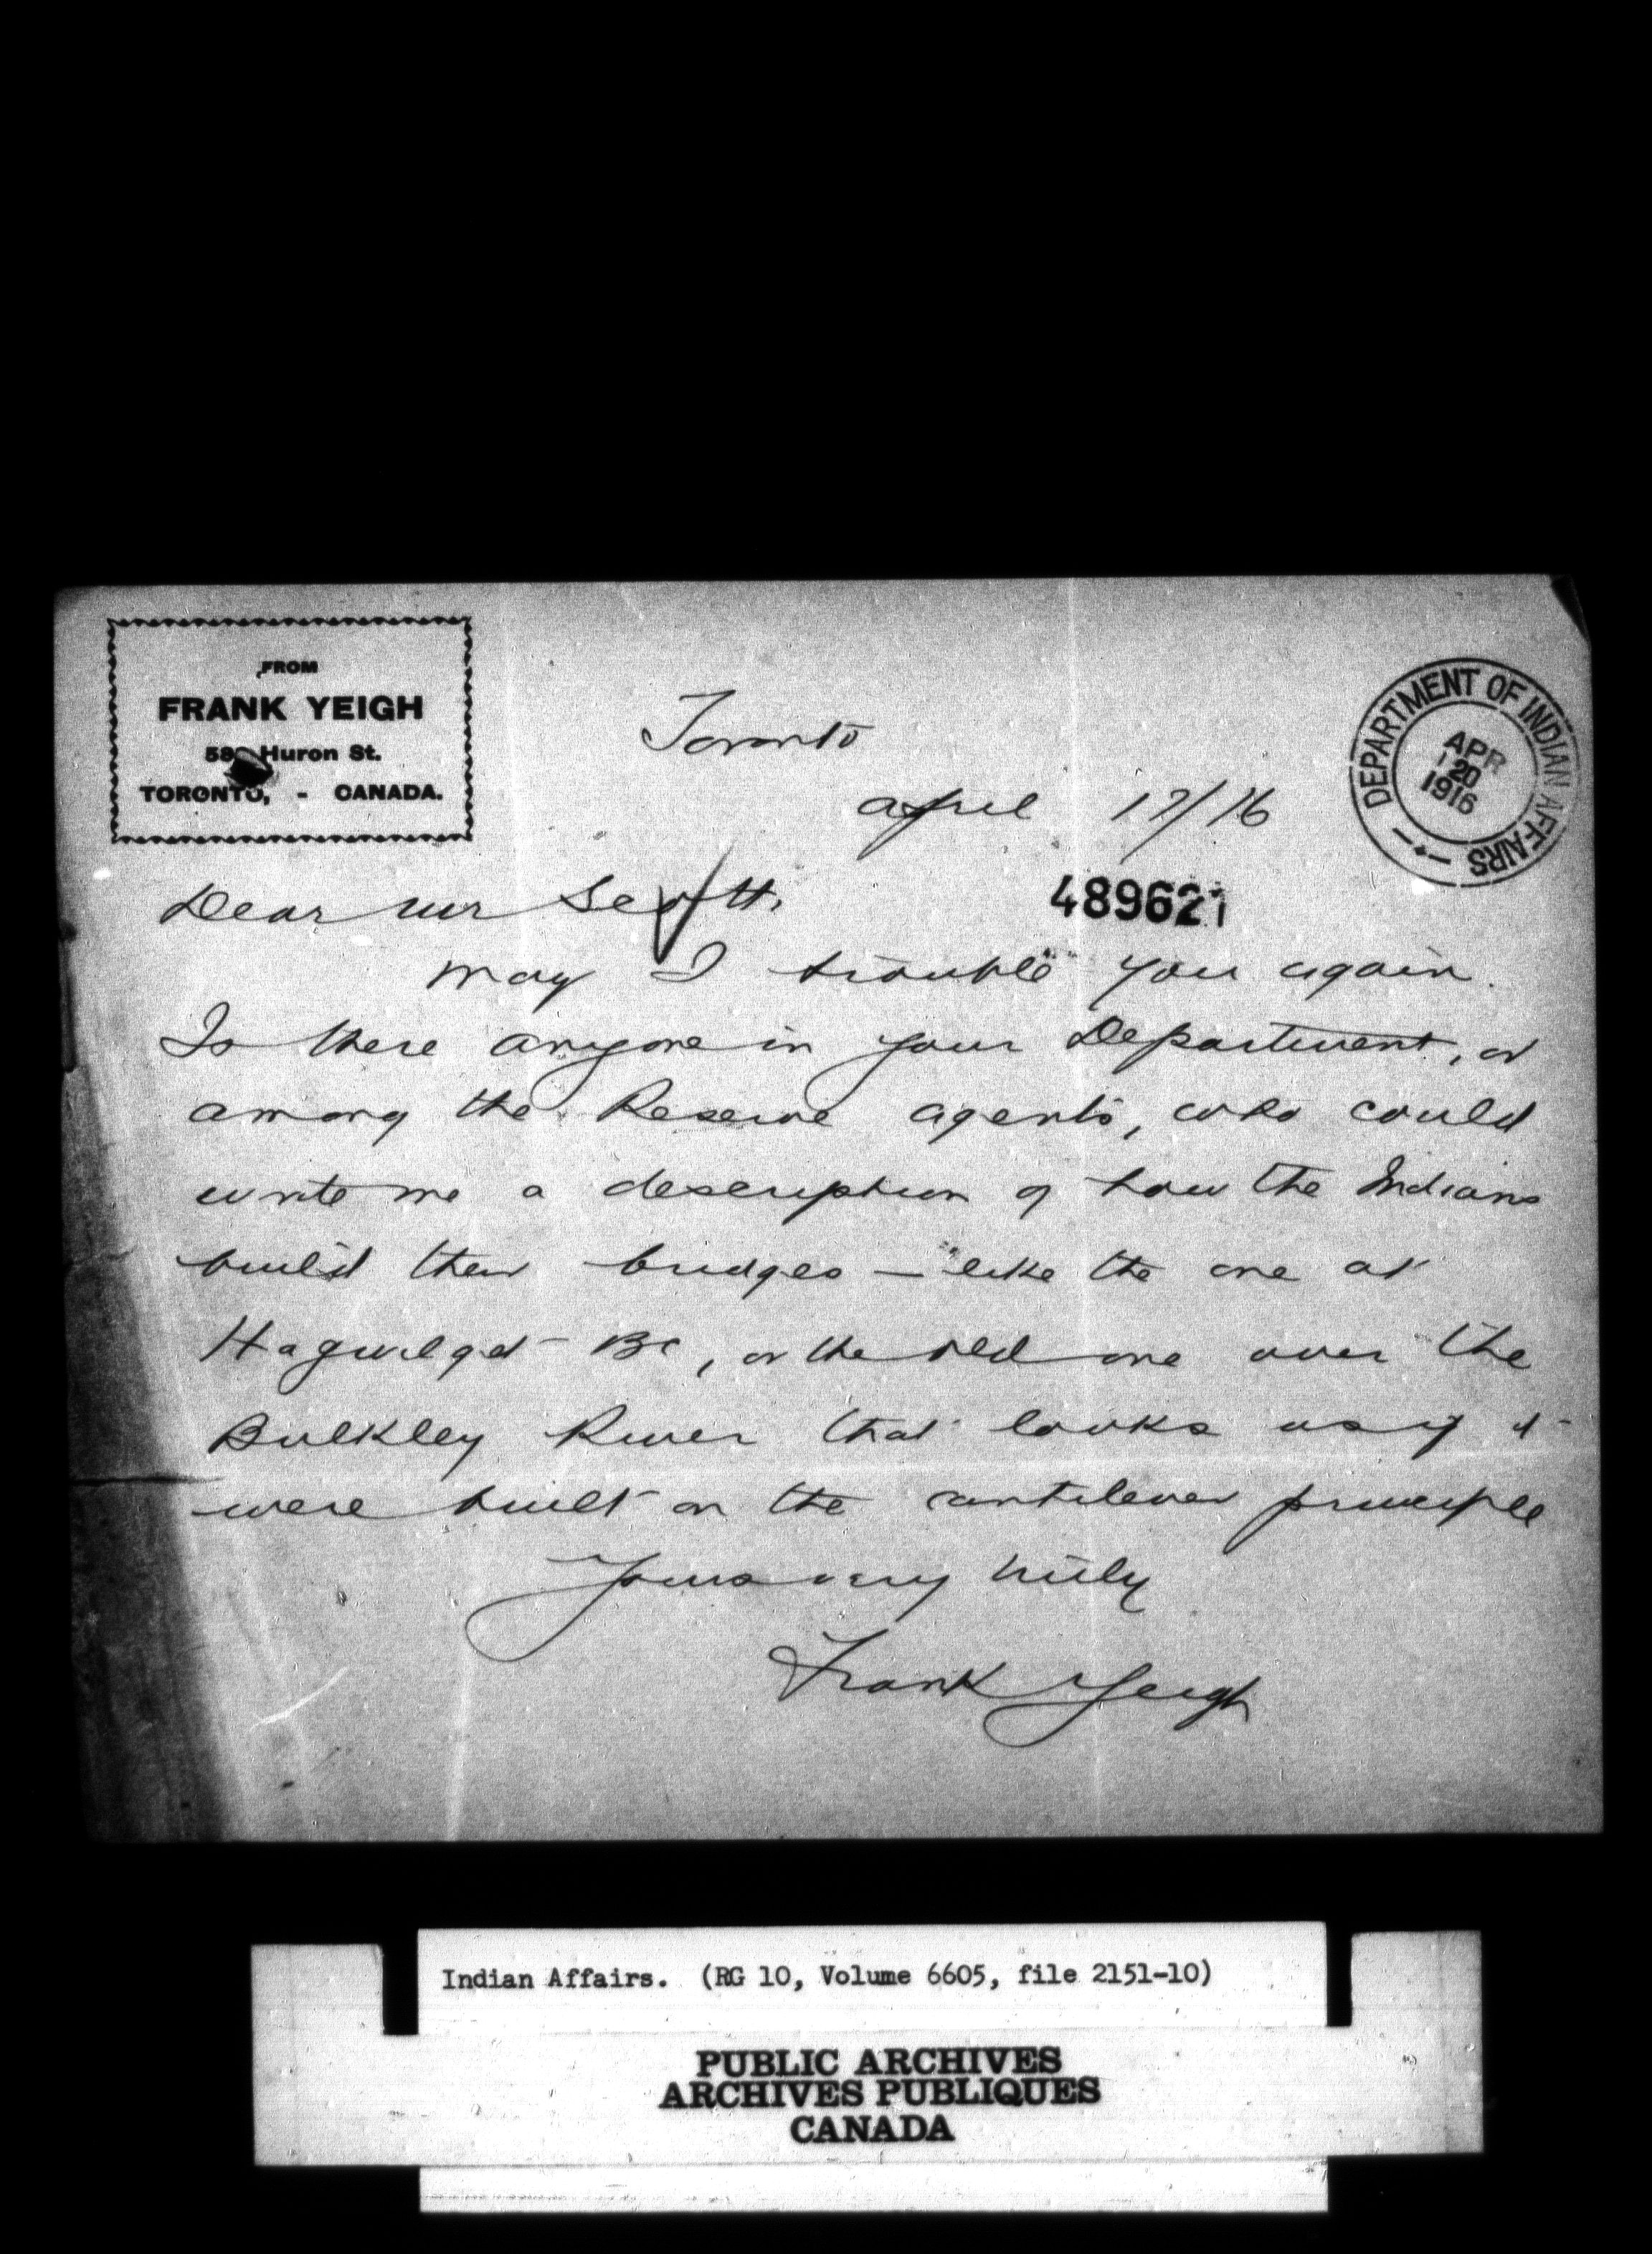 FROM
FRANK YEIGH
Huron St.
TORONTO, - CANADA.
Toronto
April 17/16
DEPARTMENT OF INDIAN AFFAIRS
APR
20
1916
489621
Dear Mr Scott,
May I trouble you again.
Is there anyone in your Department, or
among the Reserve agents, who could
write me a description of how the Indians
build their bridges — like the one at
Hagwelget BC, or the old one over the
Bulkley River that looks as if it
were built on the cantilever principle
Yours very truly
Frank Yeigh
Indian Affairs. (RG 10, Volume 6605, file 2151-10)
PUBLIC ARCHIVES
ARCHIVES PUBLIQUES
CANADA